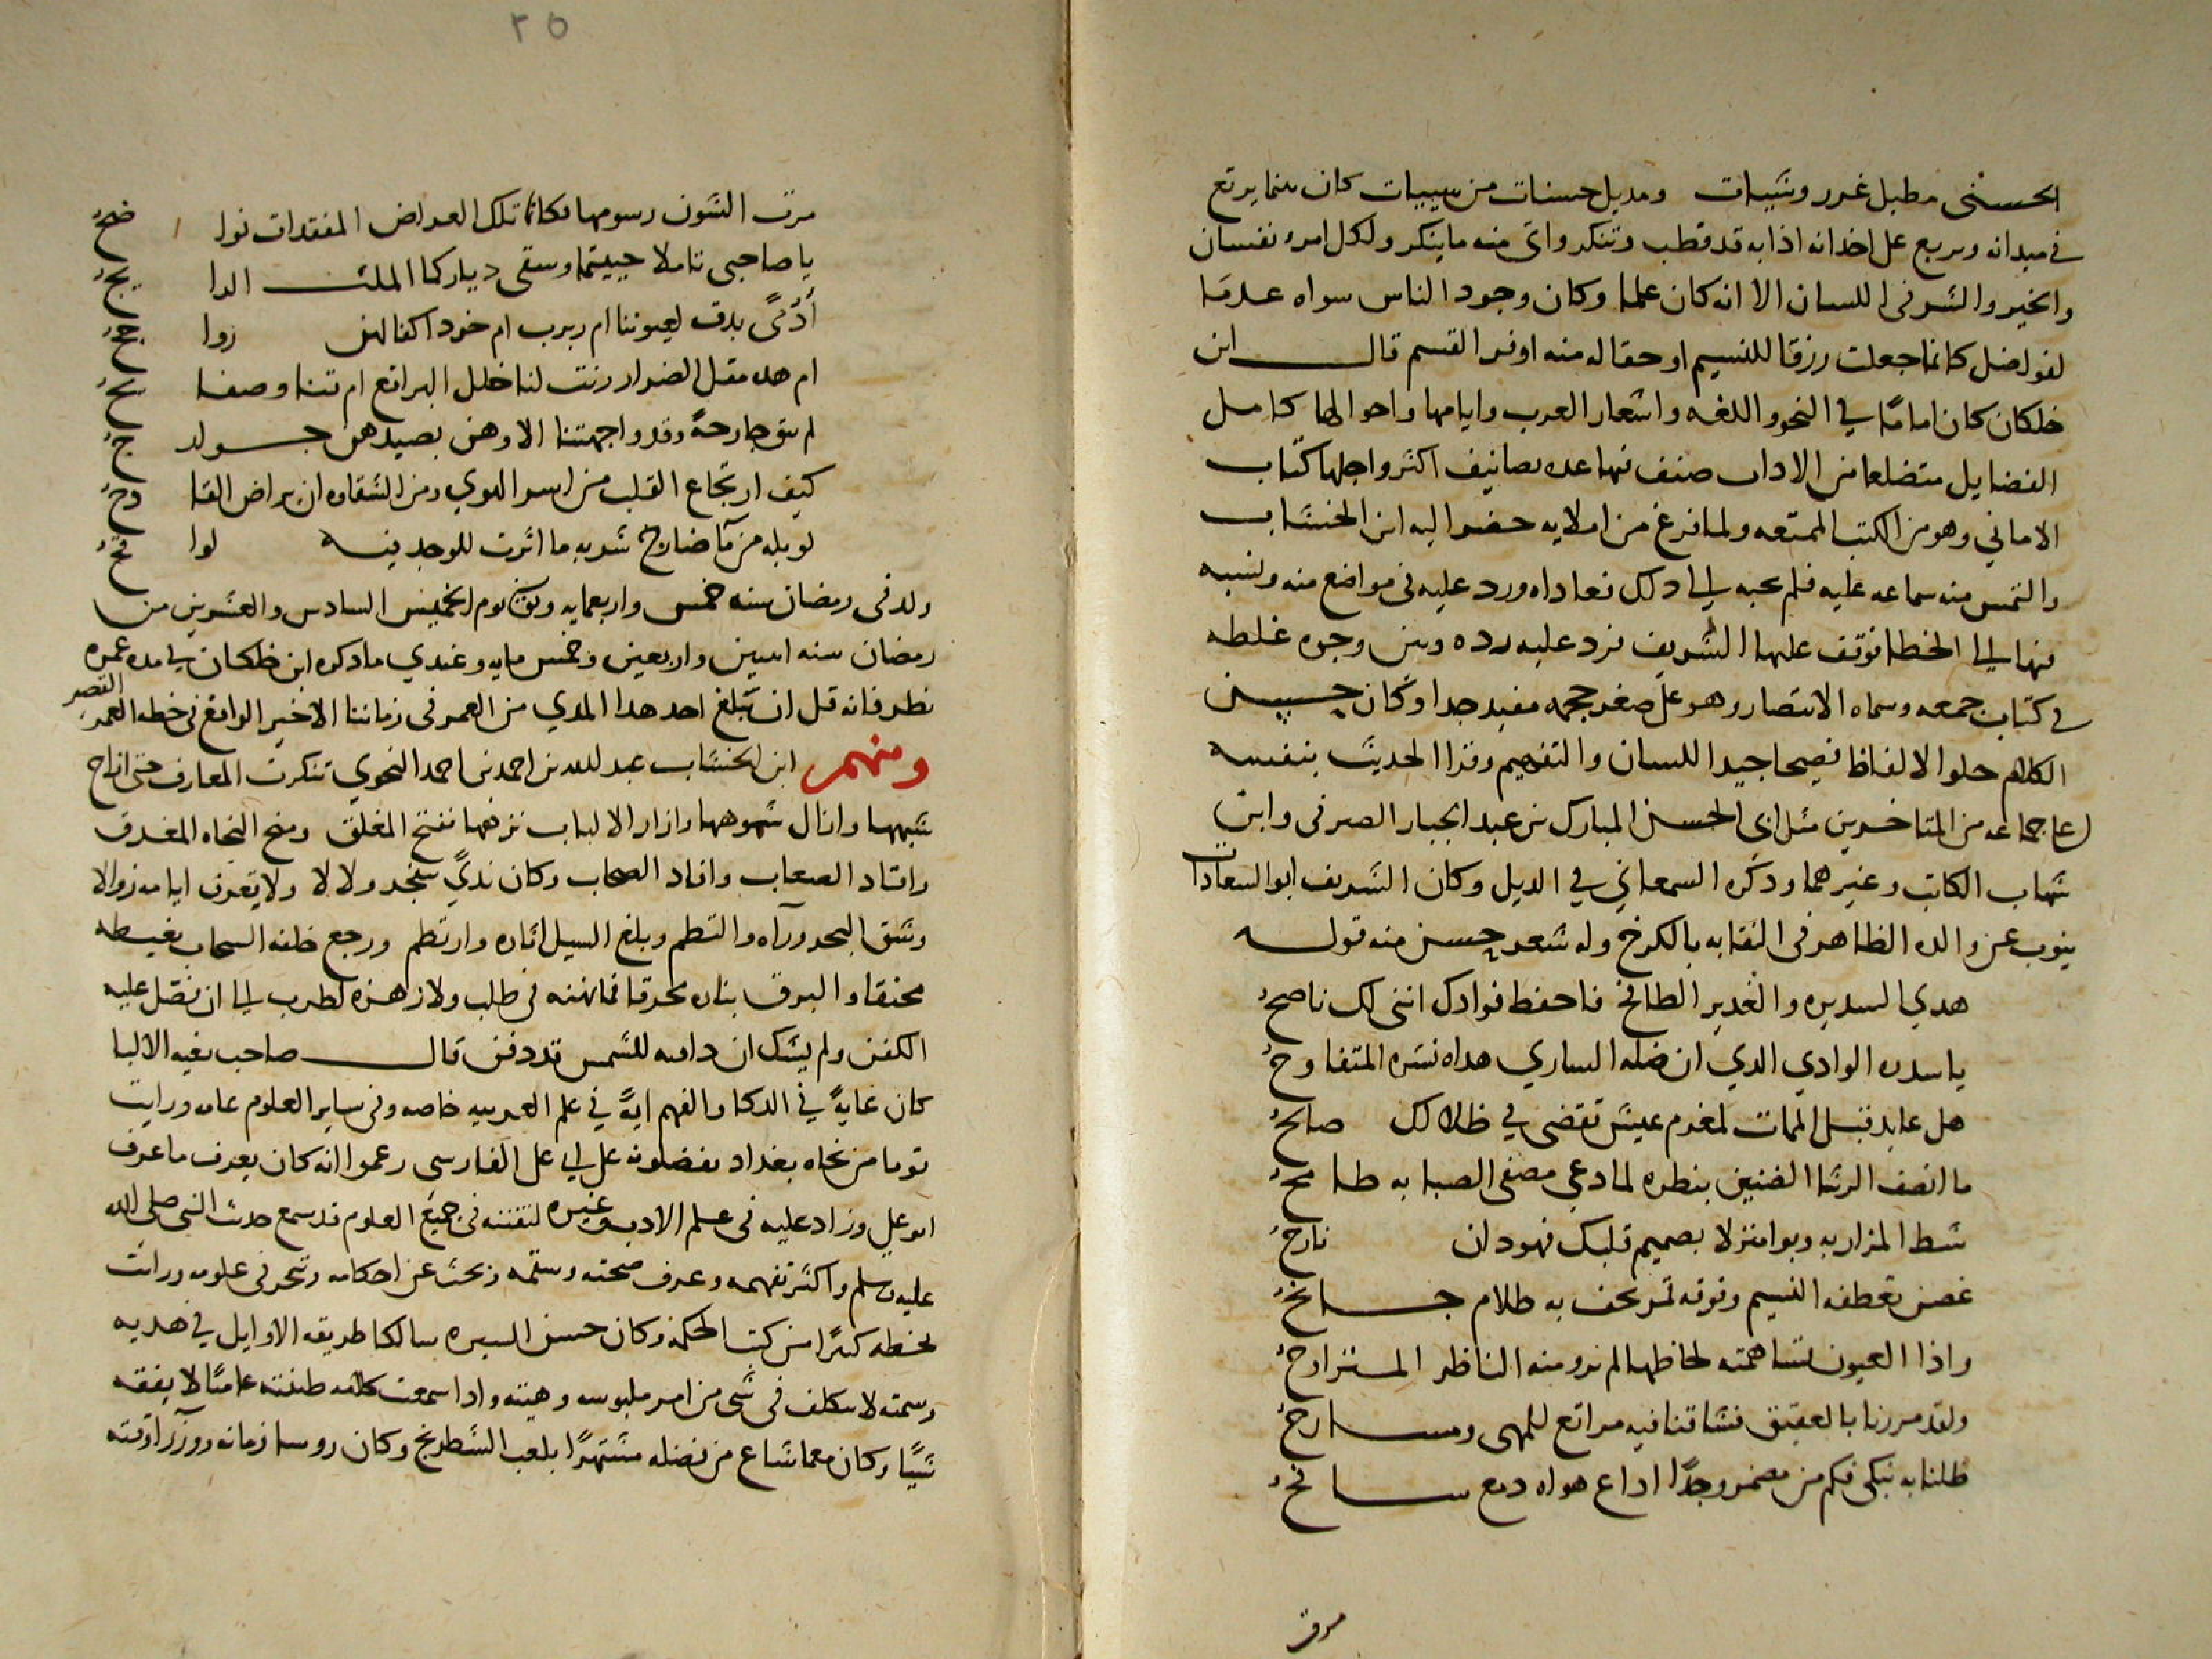 الحسني مطيل غرر وشيات ومديل حسنات من سيييات كان سما يرتع
في ميدانه ويربع على اخدانه اذا به قد قطب وتنكر واتى منه ما ينكر ولكل امرء نفسان
والخير والشر في اللسان الا انه كان علما وكان وجود الناس سواه عدما
لفواضل كانما جعلت رزقا للنسيم او حقا له منه اوفر القسم قال ابن
خلكان كان اماما في النحو واللغه واشعار العرب وايامها واحوالها كامل
الفضايل متضلعا من الاداب صنف فيها عده تصانيف اكثر واجلها كتاب
الاماني وهو من الكتب الممتعه ولما فرغ من املايه حضر اليه ابن الخشاب
والتمس منه سماعه عليه فلم يجبه الى ذلك فعاداه ورد عليه في مواضع منه ونسبه
فيها الى الخطا فوقف عليها الشريف فرد عليه رده وبين وجوه غلطه
في كتاب جمعه وسماه الانتصار وهو على صغر حجمه مفيد جدا وكان حسن
الكلام حلو الالفاظ فصيحا جيد اللسان والتفهيم وقرا الحديث بنفسه
على جماعه من المتاخرين مثل ابى الحسن المبارك بن عبد الجبار الصيرفي وابن
شهاب الكاتب وغيرهما وذكره السمعاني في الذيل وكان الشريف ابو السعادات
ينوب عن والده الظاهر في النقابه بالكرخ وله شعر حسن منه قوله
هدي السديره والغدير الطافح فاحفظ فوادك انني لك ناصح
يا سدره الوادي الذي ان ضله الساري هداه نشره المتفاوح
هل عايد قبل الممات لمغرم عيش تقضى في ظلالك صالح
ما انصف الرشا الضنين بنظره لما دعي مصغى الصبابه طامح
شط المزار به وبوا منزلا بصميم قلبك فهو دان نازح
غصن تعطفه النسيم وفوقه قمر يحف به ظلام جانح
واذا العيون تساهمته لحاظها لم يرو منه الناظر المتراوح
ولقد مررنا بالعقيق فشاقنا فيه مراتع للمهى ومسارح
ظلنا به نبكي فكم من مضمر وجدا اذاع هواه دمع سافح
مرت
٢٥
مرت الشون رسومها فكانما تلك العراض المفقدات نواضح
يا صاحبي تاملا حييتما وسقى دياركما الملث الرايح
أدمى بدت لعيوننا ام ربرب ام خود اكفالهن رواجح
ام هذه مقل الصوار رنت لنا خلل البراقع ام قنا وصفايح
لم يبق جارحة وقد واجهتنا الا وهن بصيدهن جوارح
كيف ارتجاع القلب من اسر الهوي ومن الشقاوه ان يراض القارح
لو بله من ما ضارج شربه ما اثرت للوجد فيه لوافح
ولد في رمضان سنه خمس واربعمايه وتوفي يوم الخميس السادس والعشرين من
رمضان سنه اسين واربعين وخمس مايه وعندي ما ذكره ابن خلكان في مده عمره
نظر فانه قل ان تبلغ احد هذا المدي من العمر في زماننا الاخير الواقع في خطه العمر القصير
ومنهم ابن الخشاب عبد الله بن احمد بن احمد النحوي تنكرت المعارف حتى ازاح
شبهها وازال شموهها وازار الالباب نزهها نفتح المغلق ومنح النحاه المغدق
واقتاد الصعاب وافاد الصحاب وكان ندي سجد ولالا ولا يعرف ايامه زوالا
وشق البحر ورآه والتطم وبلغ السيل اثاره وارتطم ورجع خلفه السحاب بغيظه
مختنقا والبرق بناره محرقا فما نهنه في طلب ولا زهزه لطرب الى ان نقل عليه
الكفن ولم يشك ان دامه للشمس قد دفن قال صاحب بغيه الالبا
كان غاية في الذكا والفهم اية في علم العربيه خاصه وفي ساير العلوم عامه ورايت
قوما من نحاه بغداد يفضلونه على ابي على الفارسي زعموا انه كان يعرف ما عرف
ابو علي وزاد عليه في علم الادب وغيره لتفننه في جميع العلوم قد سمع حديث النبي صلى الله
عليه وسلم واكثر تفهمه وعرف صحته وسقمه وبحث عن احكامه وتبحر في علومه ورايت
بخطه كثيرا من كتب الحكمة وكان حسن السيره سالكا طريقه الاوايل في هديه
وسمته لا يتكلف في شي من امر ملبوسه وهيته واذا سمعت كلامه ظننته عاميا لا يفقه
شيا وكان مما شاع من فضله مشتهرا بلعب الشطرنج وكان روسا زمانه ووزرا وقته